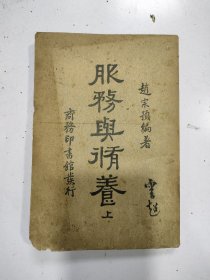 趙宗預編著
服務與脩養 上
商務印書館發行